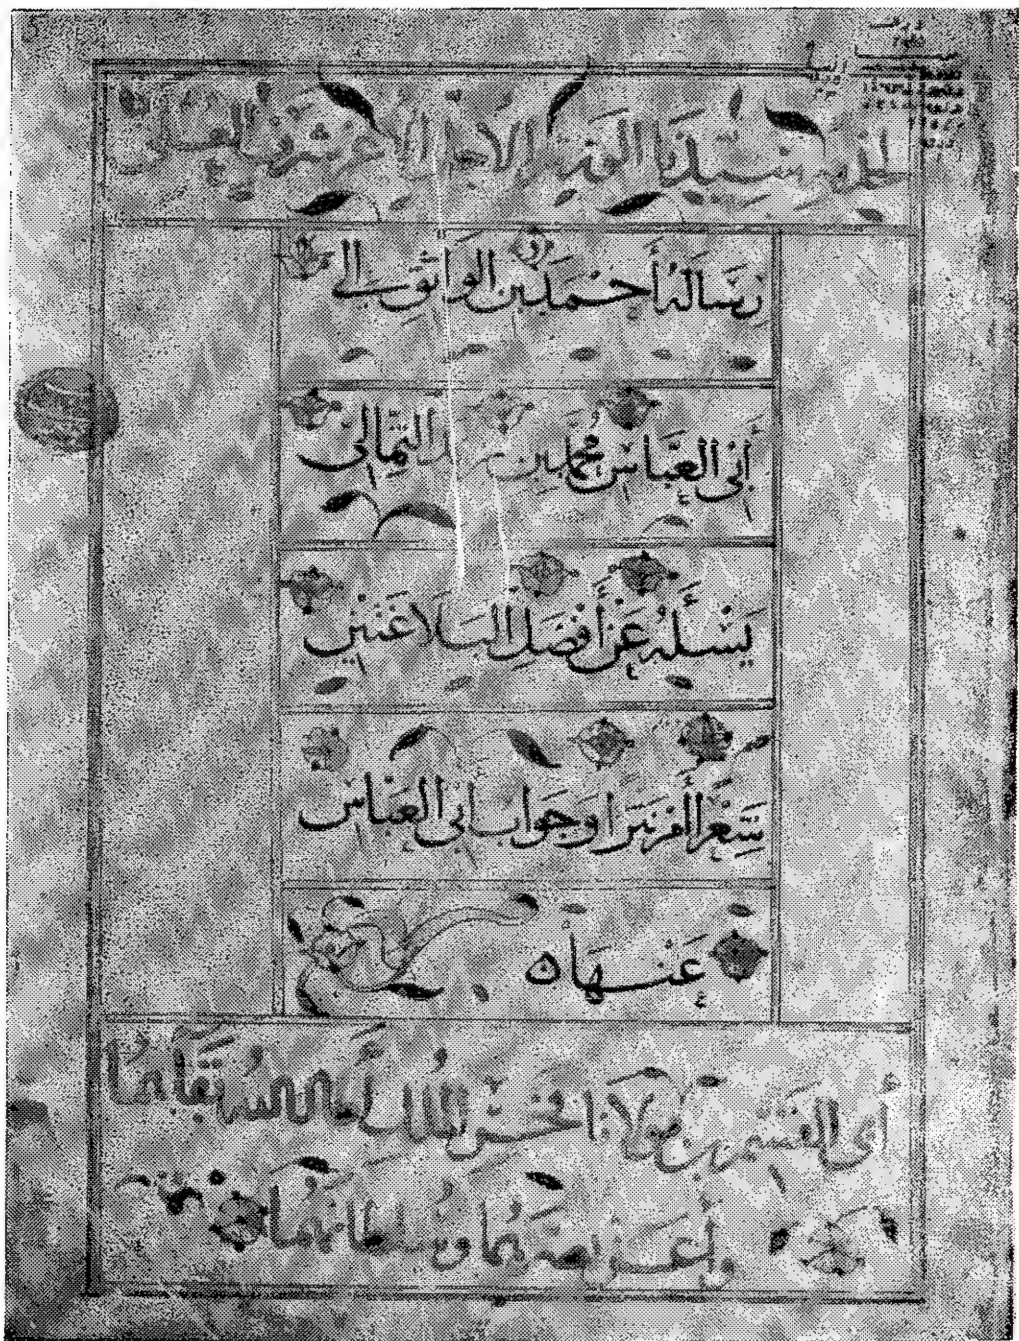 سيدنا الفقيه الاجل
رِسَالَةُ أَحْمَدَ بن الواثِقِ إلى
أبى العَبَّاسِ مُحَمَّد بن الثُّمالِىّ
يَسْئَلُهُ عَنْ أَفْضَلِ البَلاغَتَيْنِ
شِعْراً أَمْ نَثْراً وَجَوابَ ابى العَبَّاسِ
عَنْهَا ه
أبى القسم بن مولانا فخر الملك أدام الله بقاءهما
وأعز نصرهما وسلطانهما